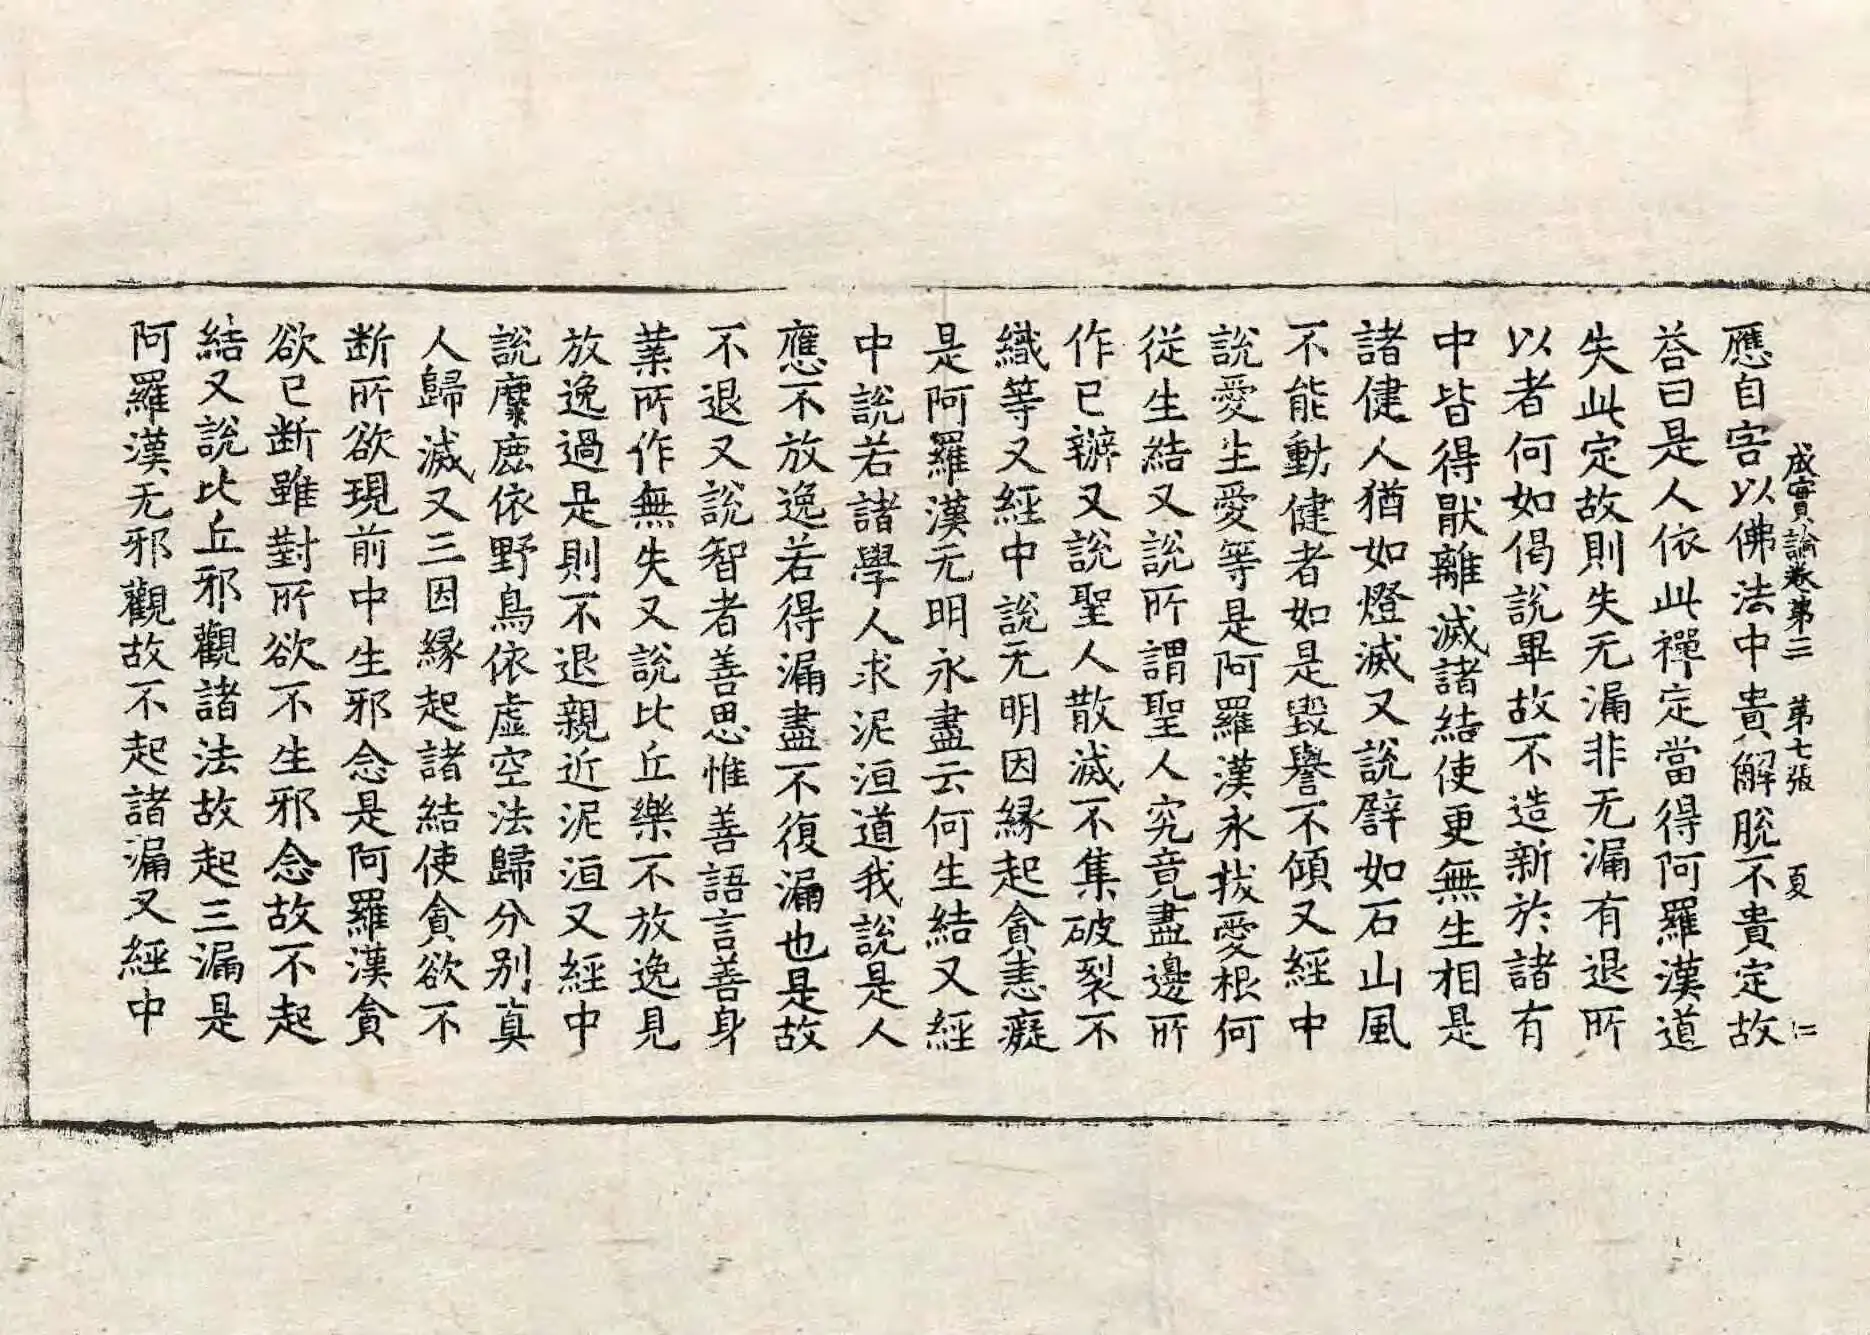 成實論卷第三 第七張 夏
應自害以佛法中貴解脫不貴定故
荅曰是人依此禪定當得阿羅漢道
失此定故則失无漏非无漏有退所
以者何如偈說畢故不造新於諸有
中皆得猒離滅諸結使更無生相是
諸健人猶如燈滅又說譬如石山風
不能動健者如是毀譽不傾又經中
說愛生愛等是阿羅漢永拔愛根何
從生結又說所謂聖人究竟盡邊所
作已辦又說聖人散滅不集破裂不
織等又經中說无明因緣起貪恚癡
是阿羅漢无明永盡云何生結又經
中說若諸學人求泥洹道我說是人
應不放逸若得漏盡不復漏也是故
不退又說智者善思惟善語言善身
業所作無失又說比丘樂不放逸見
放逸過是則不退親近泥洹又經中
說麞鹿依野鳥依虛空法歸分別真
人歸滅又三因緣起諸結使貪欲不
断所欲現前中生邪念是阿羅漢貪
欲已断雖對所欲不生邪念故不起
結又說比丘邪觀諸法故起三漏是
阿羅漢无邪觀故不起諸漏又經中